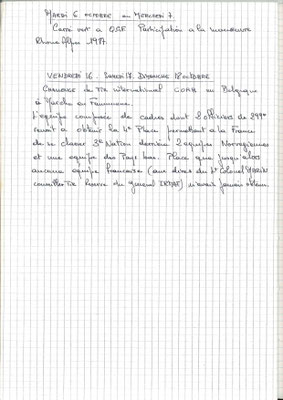 MARDI 6 OCTOBRE au MERCREDI 7
Carte vert a OSE Participation a la manoeuvre
Rhone Alpes 1987
VENDREDI 16. SAMEDI 17. DIMANCHE 18 octobre
Concours de TIR international en Belgique
a Marche en Famenne.
L'equipe compose de cadres dont 2 officiers de 299e
reussit a obtenir la 4e Place permettant a la France
de se classer 3e Nation derriere 2 equipes Norvegiennes
et une equipe des Pays bas. Place que jusqu'alors
aucune equipe francaise (aux dires du Lt Colonel
conseiller TIR Reserve du General) n'avait jamais obtenu.